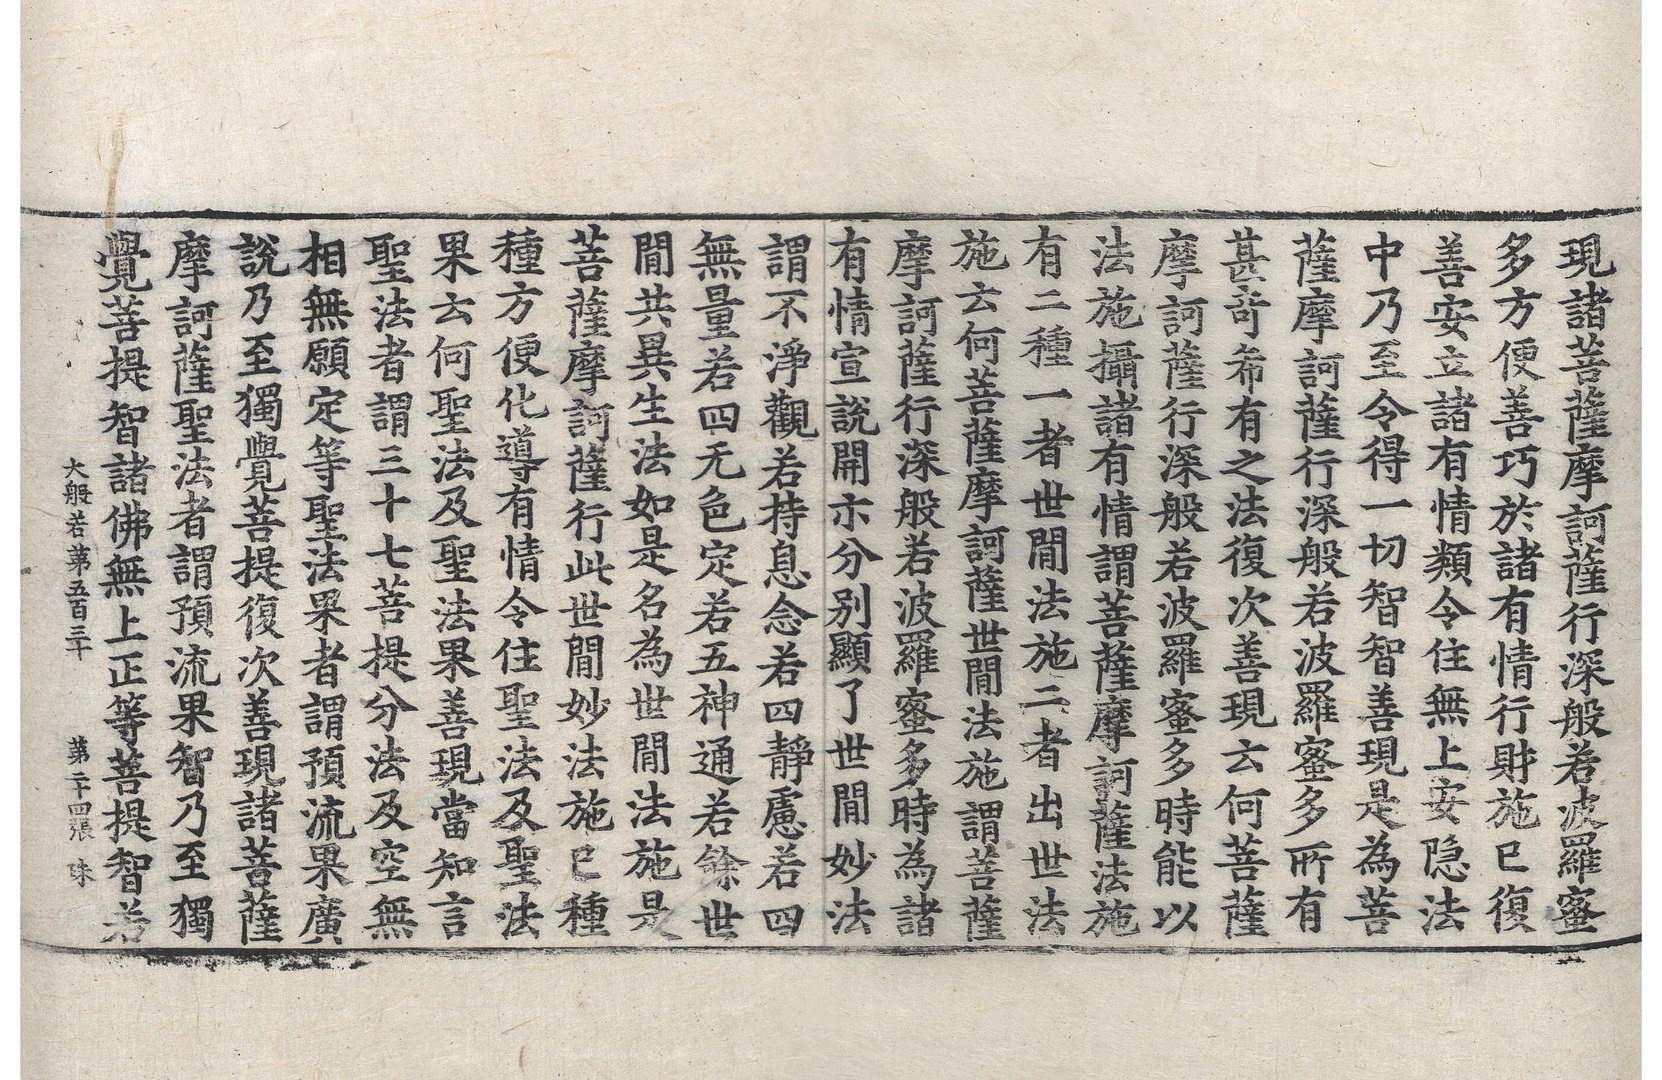 現諸菩薩摩訶薩行深般若波羅蜜
多方便善巧於諸有情行財施已復
善安立諸有情類令住無上安隱法
中乃至令得一切智智善現是為菩
薩摩訶薩行深般若波羅蜜多所有
甚奇希有之法復次善現云何菩薩
摩訶薩行深般若波羅蜜多時能以
法施攝諸有情謂菩薩摩訶薩法施
有二種一者世間法施二者出世法
施云何菩薩摩訶薩世間法施謂菩薩
摩訶薩行深般若波羅蜜多時為諸
有情宣說開示分別顯了世間妙法
謂不淨觀若持息念若四靜慮若四
無量若四无色定若五神通若餘世
間共異生法如是名為世間法施是
菩薩摩訶薩行此世間妙法施已種
種方便化導有情令住聖法及聖法
果云何聖法及聖法果善現當知言
聖法者謂三十七菩提分法及空無
相無願定等聖法果者謂預流果廣
說乃至獨覺菩提復次善現諸菩薩
摩訶薩聖法者謂預流果智乃至獨
覺菩提智諸佛無上正等菩提智若
大般若第五百三十 第二十四張 珠